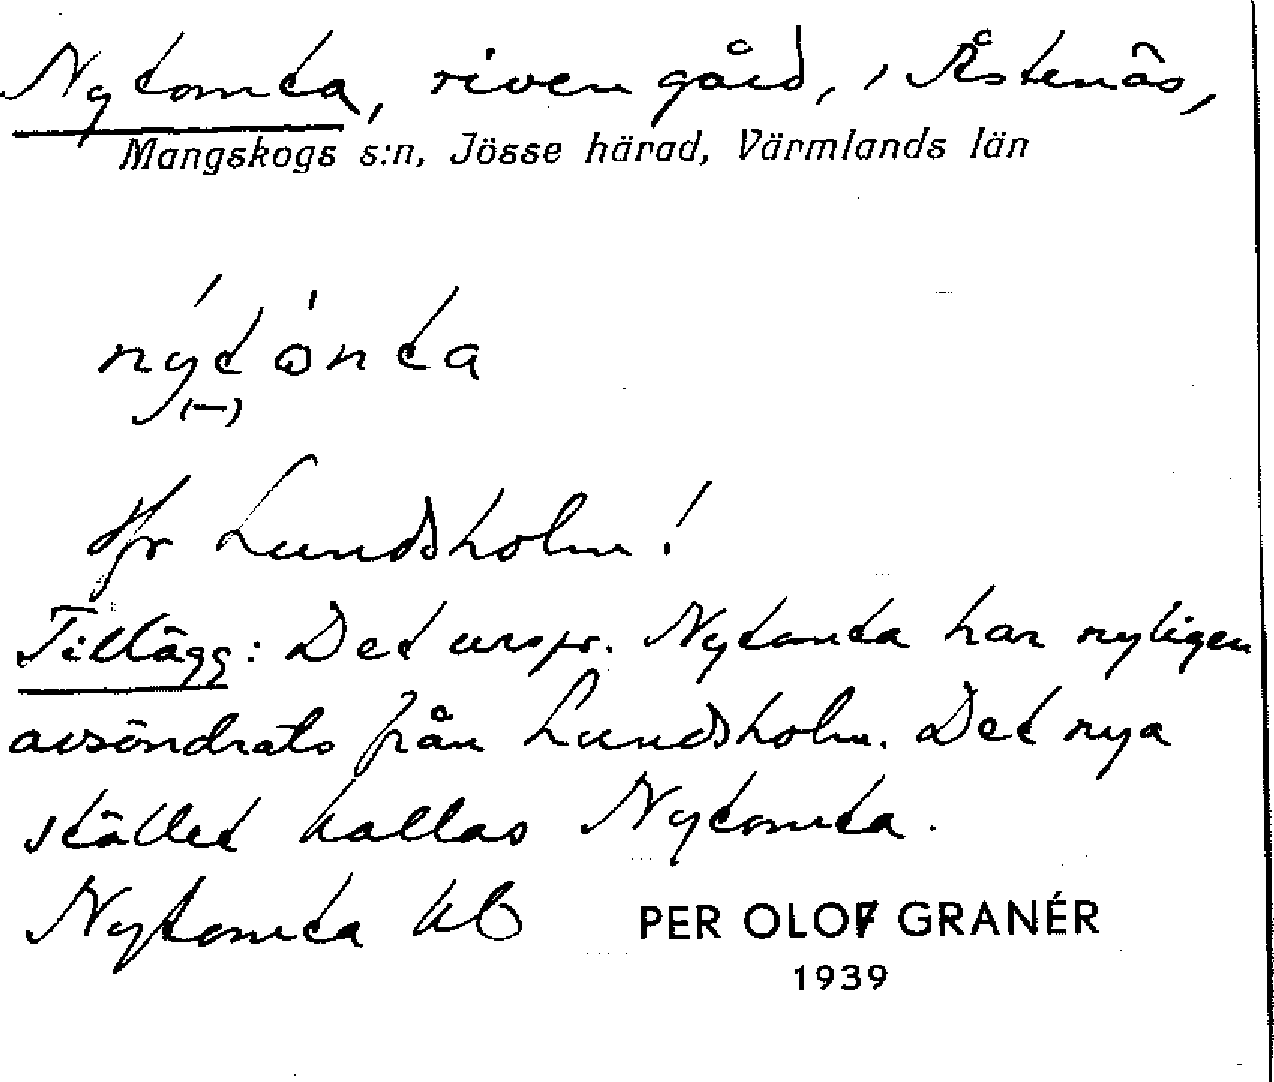 Nytomta, riven gård, i Åstenäs,
Mangskogs s:n, Jösse härad, Värmlands län
Jfr Lundsholm!
Tillägg: Det urspr. Nytomta har nyligen
avsöndrats från Lundsholm. Det nya
stället kallas Nytomta.
Nytomta kb
PER OLOF GRANÉR
1939